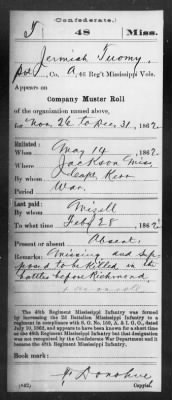 (Confederate.)
T 48 Miss.
Jeremiah Twomy
Pvt, Co. A, 48 Reg't Mississippi Vols.
Appears on
Company Muster Roll
of the organization named above,
for Nov. 26 to Dec. 31, 1862.
Enlisted:
When May 14, 1862.
Where Jackson Miss
By whom Capt. Kerr
Period War.
Last paid:
By whom Mizell
To what time Feby 28, 1862
Present or absent Absent.
Remarks: Missing and sup-
posed to be killed in the
battles before Richmond
The 48th Regiment Mississippi Infantry was formed
by increasing the 2d Battalion Mississippi Infantry to a
regiment in compliance with S. O. No.
dated
and appears to have been known for a short time
as the 49th Regiment Mississippi Infantry but that designation
was not recognized by the Confederate War Department and it
became the 48th Regiment Mississippi Infantry.
Book mark:
J. Donohue
(642) Copyist.